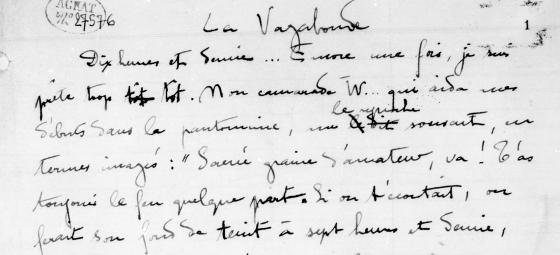 ACHAT
27576
La Vagabonde
1
Dix heures et demie ... Encore une fois, je suis
prête trop tôt tôt. Mon camarade W... qui aida mes
le reproche
débuts dans la pantomime, me le dit souvent, en
termes imagés : "Sacrée graine d'amateur, va ! T'as
toujours le feu quelque part. Si on t'écoutait, on
ferait son fond de teint à sept heures et demie,